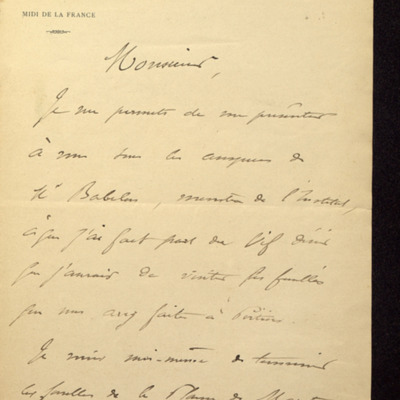 MIDI DE LA FRANCE
Monsieur,
Je me permets de me présenter
à vous sous les auspices de
Mr Babelon, membre de l'Institut,
à qui j'ai fait part du vif désir
que j'aurais de visiter les fouilles
que vous avez faites à Poitiers.
Je viens moi-même de terminer
les fouilles de la Place de